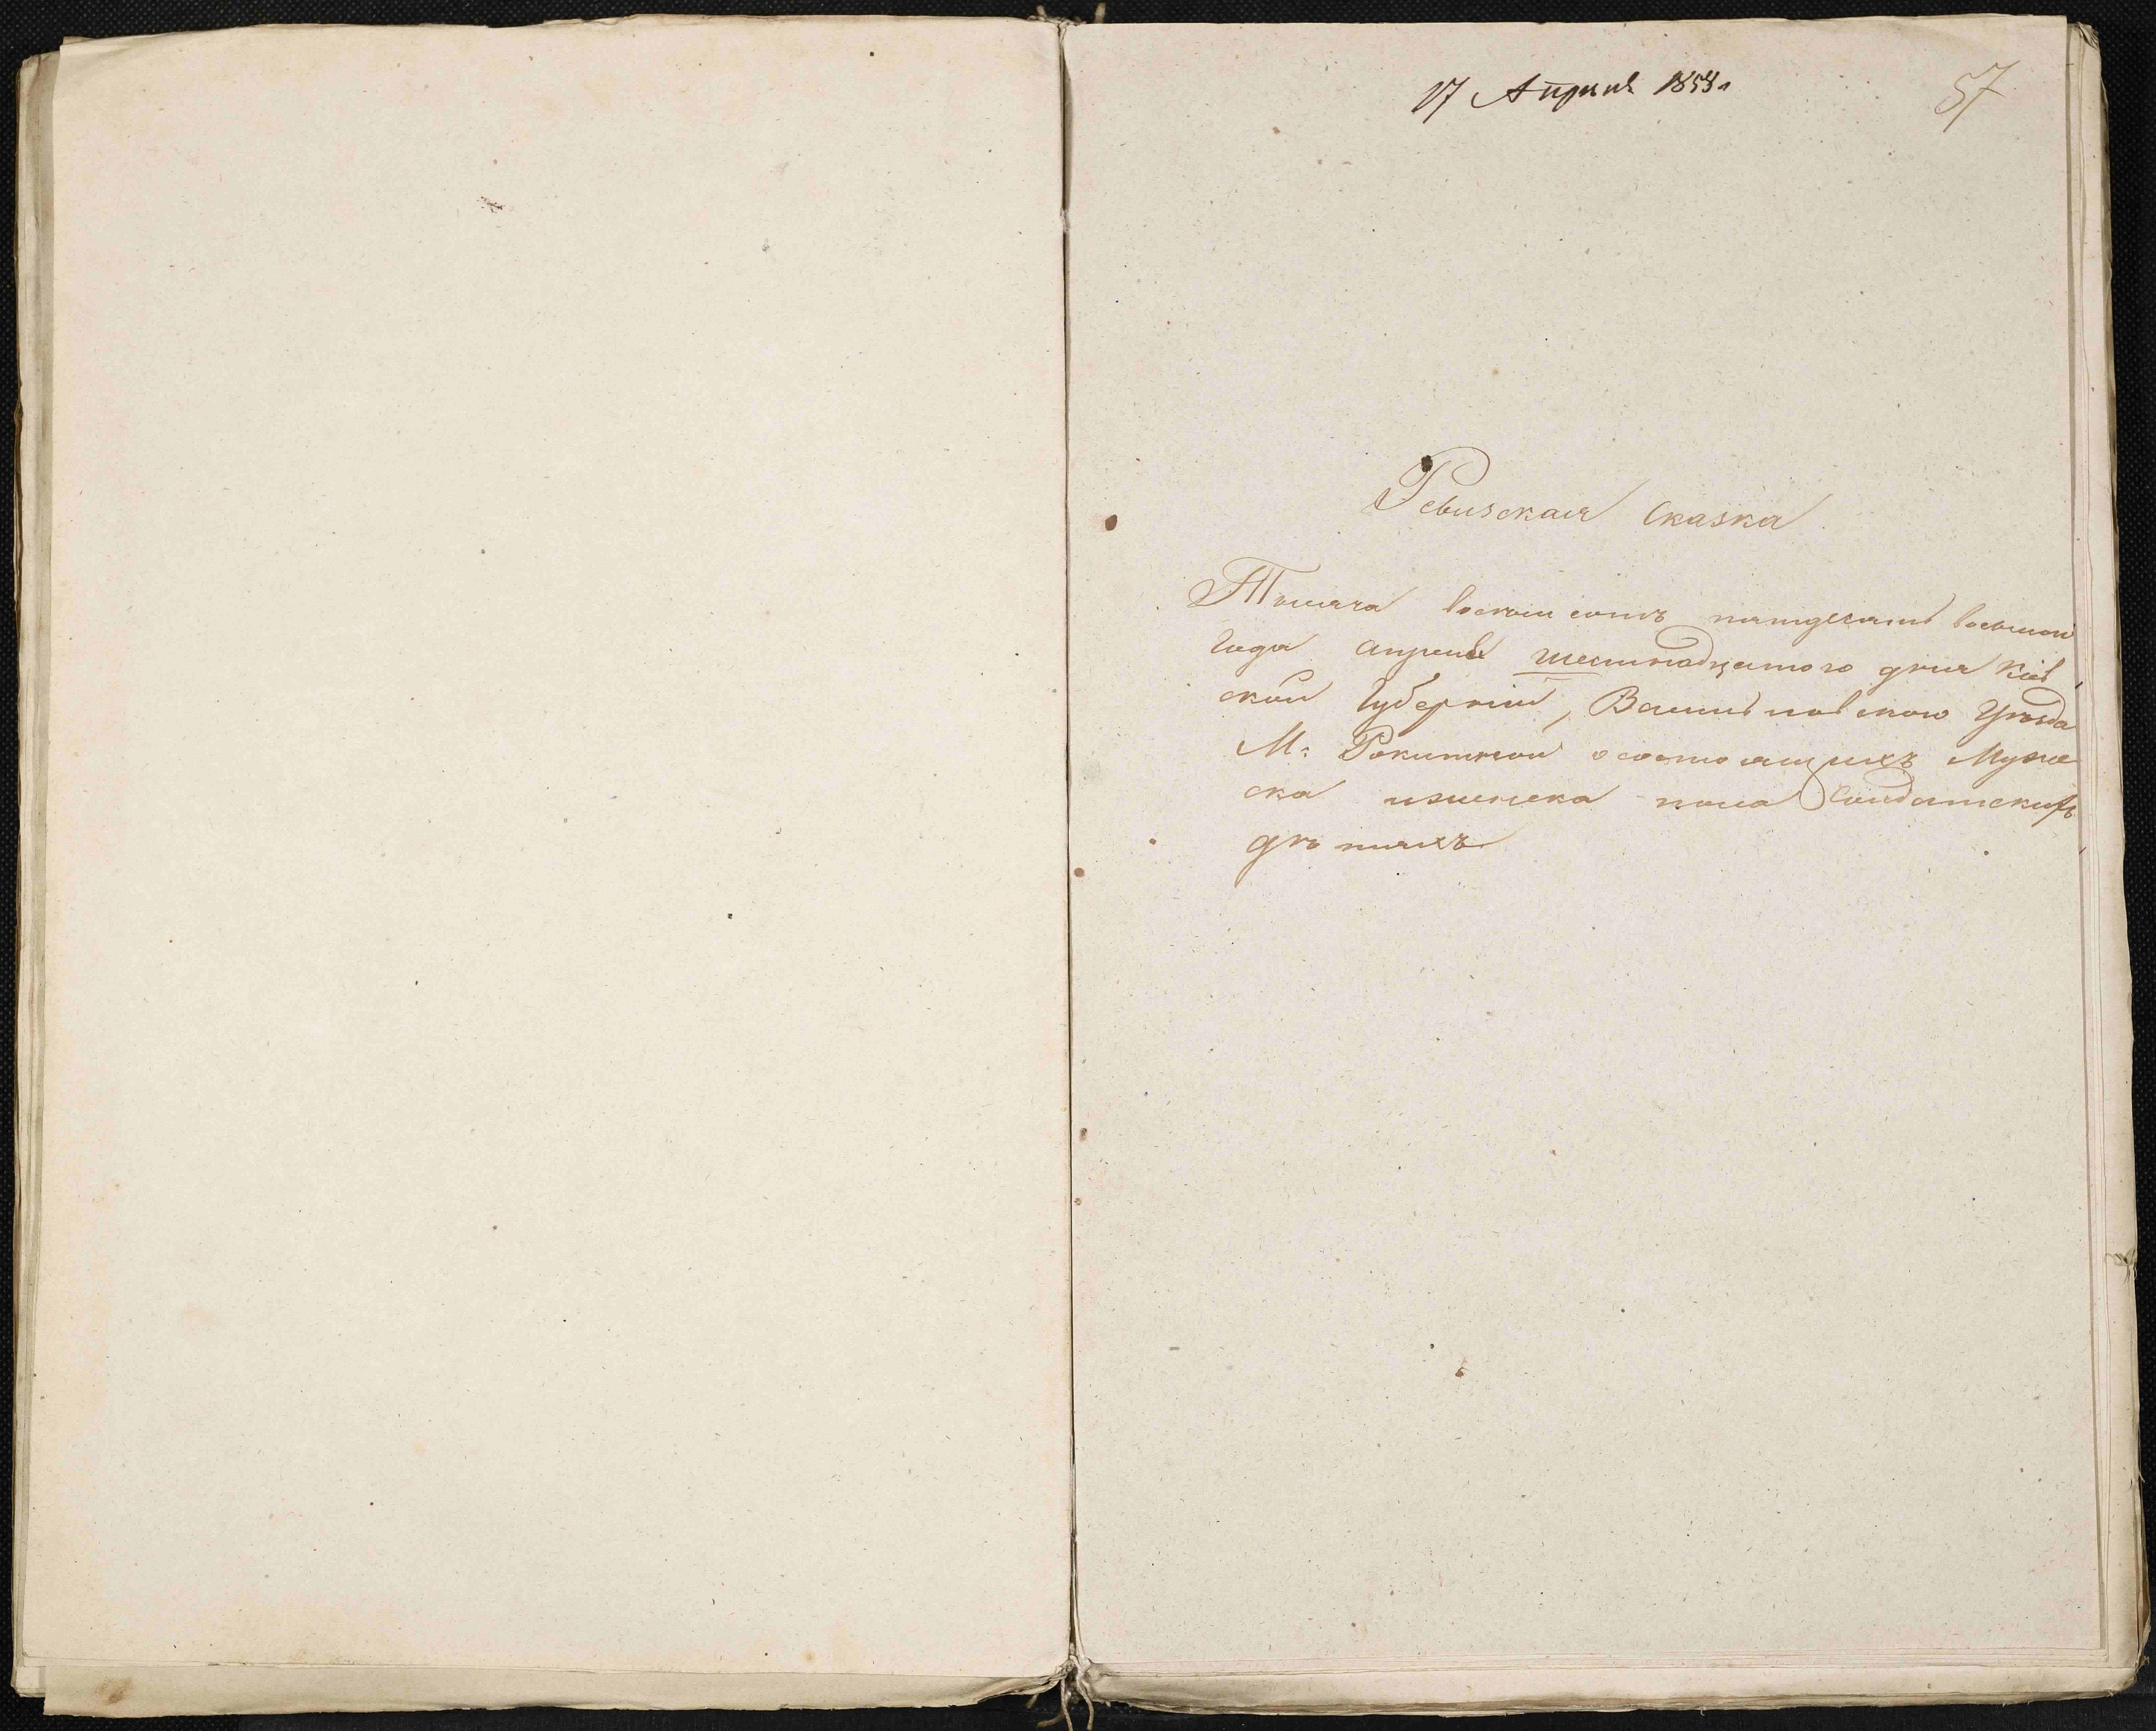 17 Апреля 1858 г.
57
Ревизская Сказка
Тысяча восемь сотъ пятдесятъ восьмои
года апреля шестнадцатого дня Кіев
ской Губерніи, Васильковского Уезда
М: Рокитной о состоящихъ Муже
ска и женска пола Солдатскихъ
дѣтяхъ